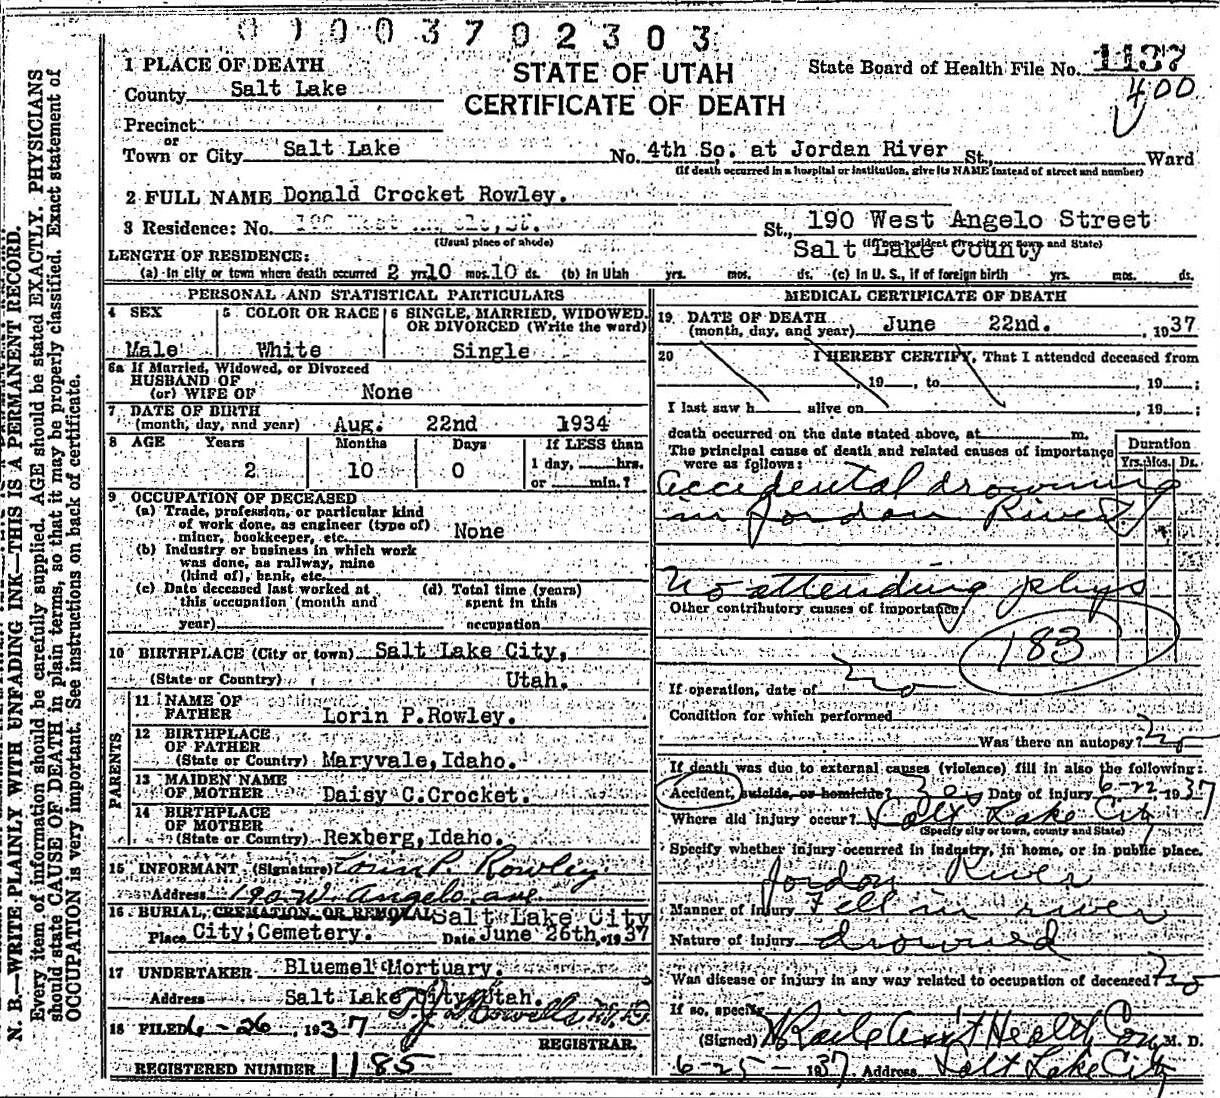 0 1 0 0 3 7 0 2 3 0 3
STATE OF UTAH
CERTIFICATE OF DEATH
State Board of Health File No. 1137
400
1 PLACE OF DEATH
County Salt Lake
Precinct
or
Town or City Salt Lake No. 4th So. at Jordan River St., Ward
(If death occurred in a hospital or institution, give its NAME instead of street and number)
2 FULL NAME Donald Crocket Rowley.
3 Residence: No. St., 190 West Angelo Street
(Usual place of abode) Salt Lake County
LENGTH OF RESIDENCE:
(a) In city or town where death occurred 2 yrs. 10 mos. 10 ds. (b) In Utah yrs. mos. ds. (c) In U. S., if of foreign birth yrs. mos. ds.
PERSONAL AND STATISTICAL PARTICULARS
4 SEX Male
5 COLOR OR RACE White
6 SINGLE, MARRIED, WIDOWED, OR DIVORCED (Write the word) Single
6a If Married, Widowed, or Divorced
HUSBAND OF
(or) WIFE OF None
7 DATE OF BIRTH
(month, day, and year) Aug. 22nd 1934
8 AGE Years Months Days If LESS than
2 10 0 1 day, hrs.
or min.?
9 OCCUPATION OF DECEASED
(a) Trade, profession, or particular kind
of work done, as engineer (type of)
miner, bookkeeper, etc. None
(b) Industry or business in which work
was done, as railway, mine
(kind of), bank, etc.
(c) Date deceased last worked at
this occupation (month and
year)
(d) Total time (years)
spent in this
occupation
10 BIRTHPLACE (City or town) Salt Lake City,
(State or Country) Utah.
PARENTS
11 NAME OF
FATHER Lorin P.Rowley.
12 BIRTHPLACE
OF FATHER
(State or Country) Maryvale, Idaho.
13 MAIDEN NAME
OF MOTHER Daisy C.Crocket.
14 BIRTHPLACE
OF MOTHER
(State or Country) Rexberg, Idaho.
15 INFORMANT (Signature) Lorin P. Rowley.
Address 190 W. Angelo ave
16 BURIAL, CREMATION, OR REMOVAL Salt Lake City
Place City, Cemetery. Date June 26th, 1937
17 UNDERTAKER Bluemel Mortuary.
Address Salt Lake City, Utah.
18 FILED 6-26, 1937 T.J. Howells M.D.
REGISTRAR.
REGISTERED NUMBER 1185
MEDICAL CERTIFICATE OF DEATH
19 DATE OF DEATH
(month, day, and year) June 22nd. , 1937
20 I HEREBY CERTIFY, That I attended deceased from
, 19 , to , 19 ;
I last saw h alive on , 19 ;
death occurred on the date stated above, at m.
The principal cause of death and related causes of importance
were as follows:
Duration
Yrs. Mos. Ds.
accidental drowning
in Jordon River
No attending phys
Other contributory causes of importance:
183
If operation, date of no
Condition for which performed
Was there an autopsy? no
If death was due to external causes (violence) fill in also the following:
Accident, suicide, or homicide? Date of Injury 6-22, 1937
Where did injury occur? Salt Lake City
(Specify city or town, county and State)
Specify whether injury occurred in industry, in home, or in public place.
Jordon River
Manner of Injury Fell in river
Nature of Injury drowned
Was disease or injury in any way related to occupation of deceased? no
If so, specify
(Signed) Ass't Health Com M. D.
6-25-1937 Address Salt Lake City
N. B.—WRITE PLAINLY WITH UNFADING INK—THIS IS A PERMANENT RECORD.
Every item of information should be carefully supplied. AGE should be stated EXACTLY. PHYSICIANS
should state CAUSE OF DEATH in plain terms, so that it may be properly classified. Exact statement of
OCCUPATION is very important. See instructions on back of certificate.